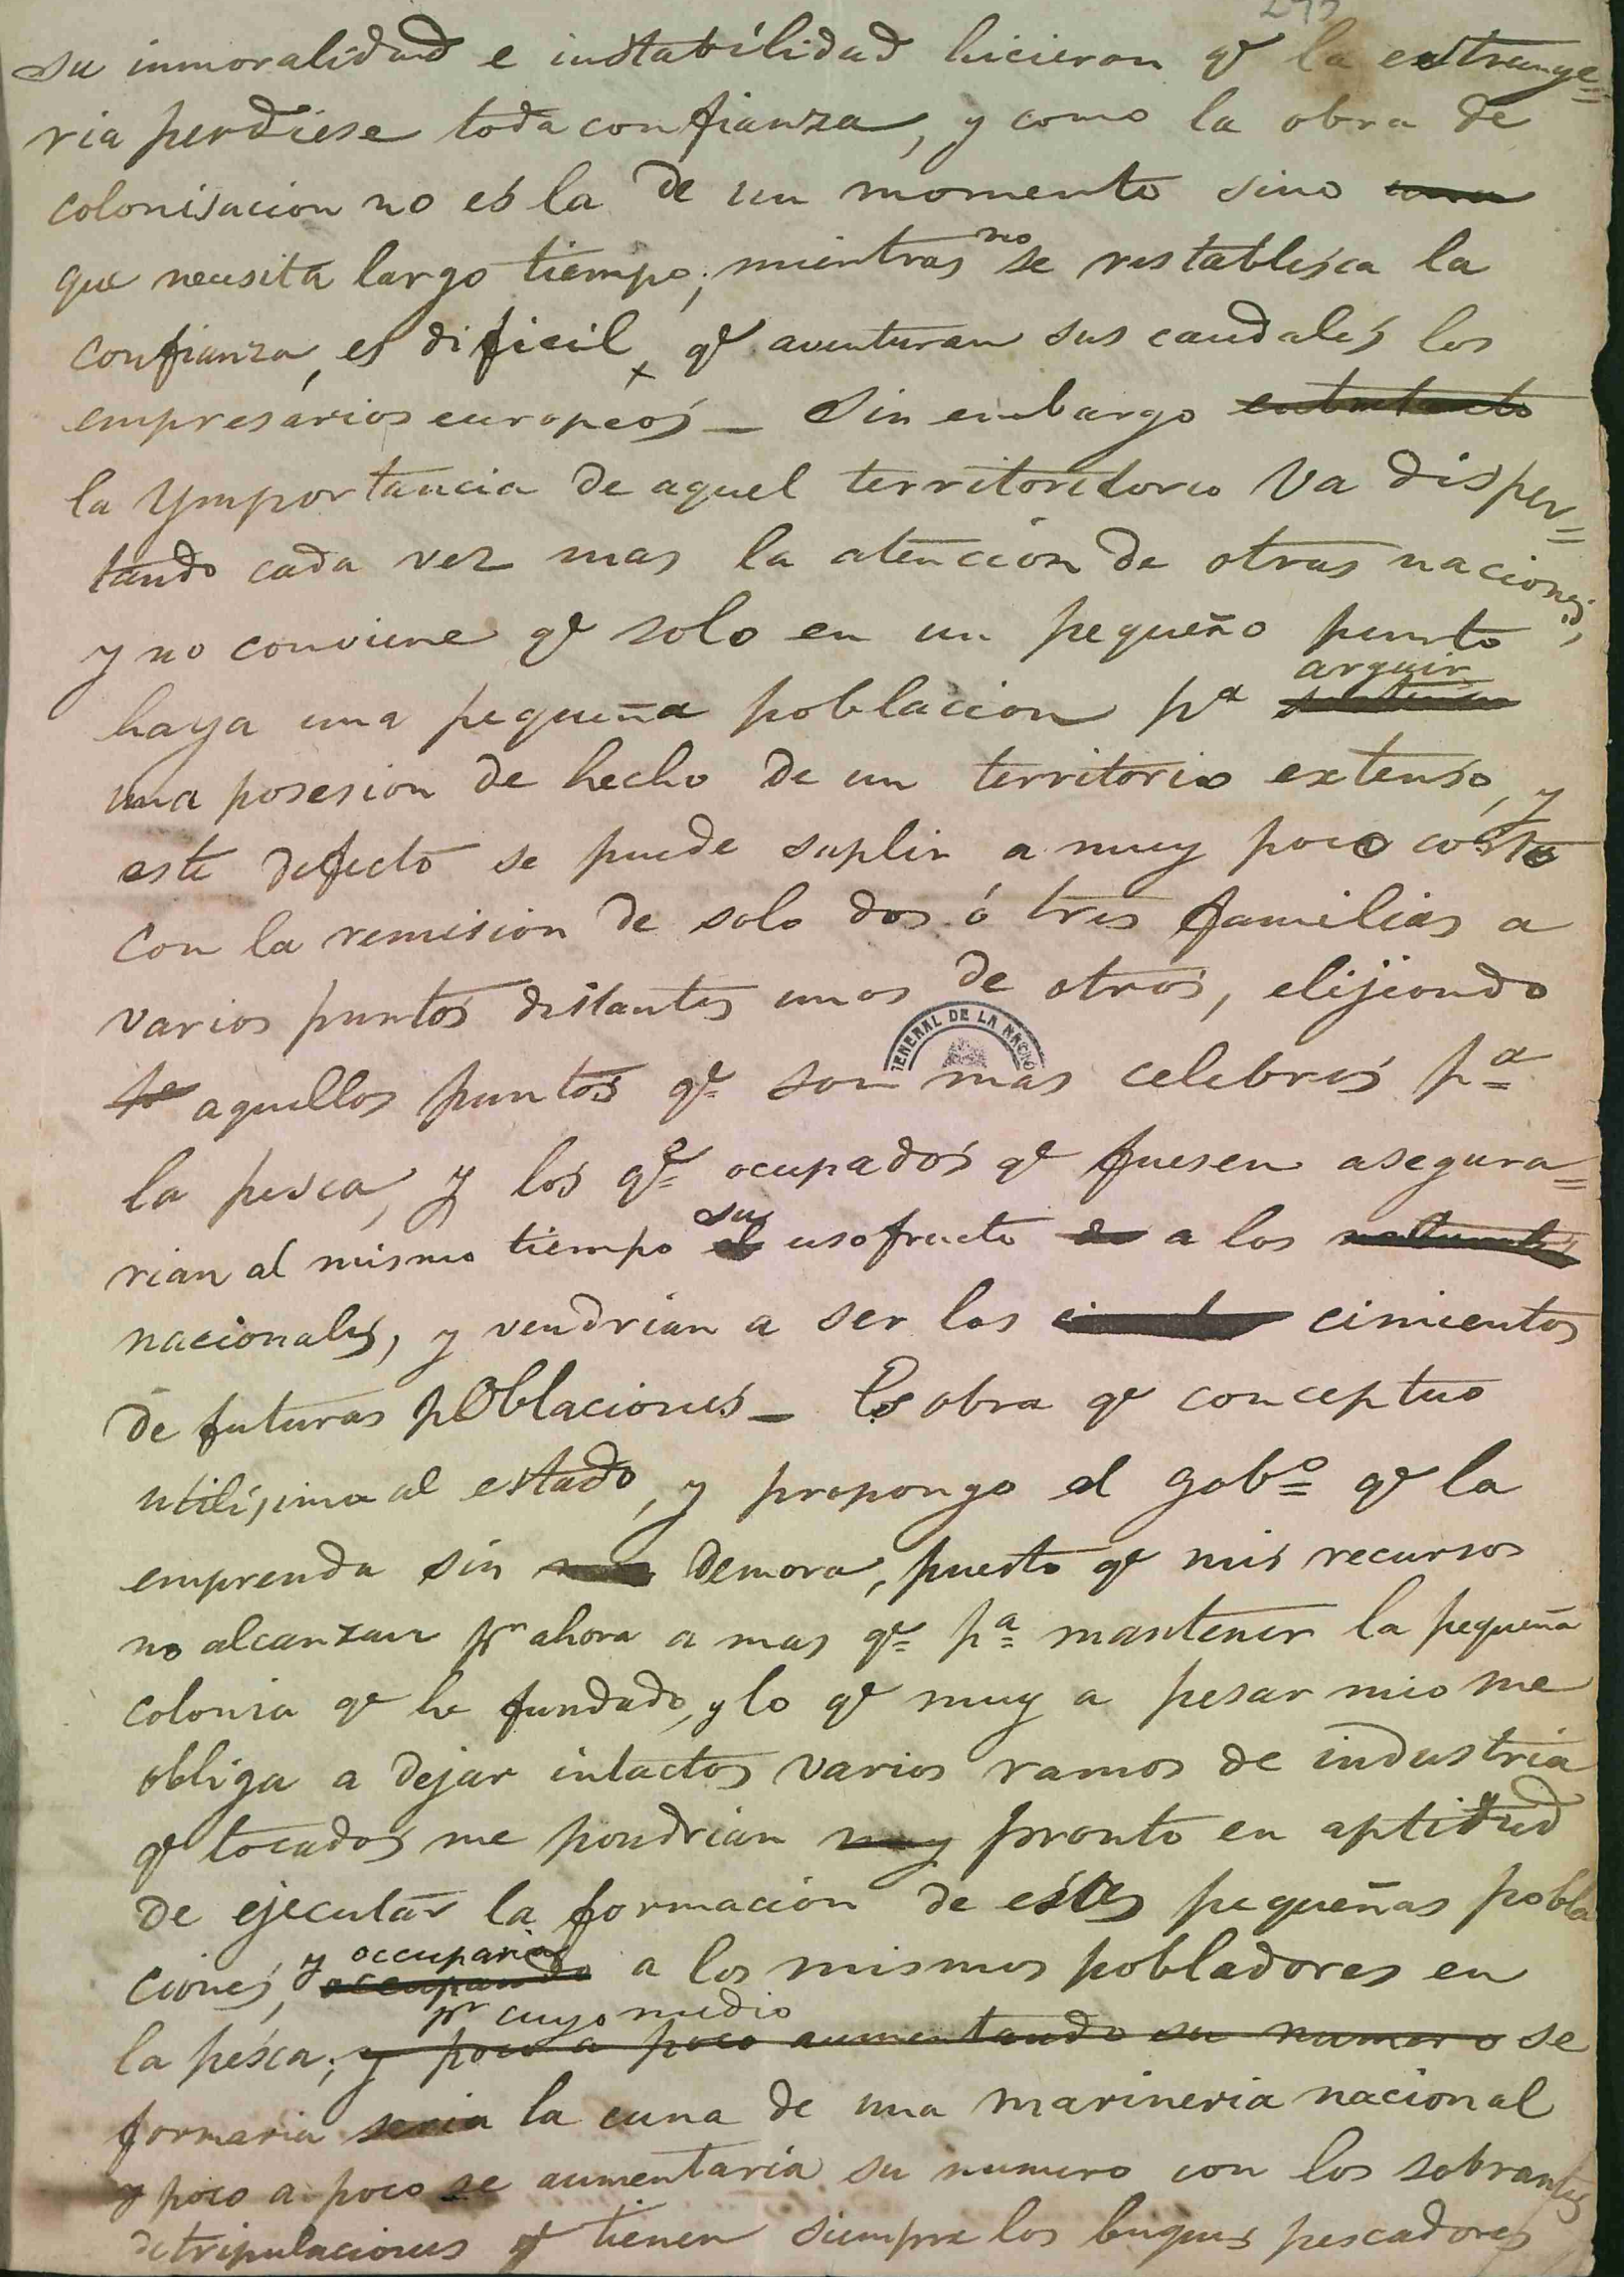 su inmoralidad e instabilidad hicieron qe la extrange=
ria perdiese toda confianza, y como la obra de
colonisacion no es la de un momento sino
que necesita largo tiempo; mientras no se restablesca la
confianza, es dificil qe aventuran sus caudales los
empresarios europeos_ Sin embargo entretanto
la Ymportancia de aquel territoritorio va disper=
tando cada vez mas la atencion de otras naciones,
y no conviene qe solo en un pequeño punto
haya una pequeña poblacion pa arguir
una posesion de hecho de un territorio extenso, y
este defecto se puede suplir a muy poco costo
con la remision de solo dos ó tres familias a
varios puntos distantes unos de otros, elijiendo
aquellos puntos qe son mas celebres pa
GENERAL DE LA NACION
la pesca, y los qe ocupados qe fuesen asegura=
rian al mismo tiempo su el usofructo de a los naturales
nacionales, y vendrian a ser los cimientos
de futuras poblaciones_ Es obra qe conceptuo
utilisima al estado, y propongo al gobo qe la
emprenda sin demora, puesto qe mis recursos
no alcanzan pr ahora a mas qe pa mantener la pequeña
colonia qe he fundado, y lo qe muy a pesar mio me
obliga a dejar intactos varios ramos de industria
qe tocados me pondrian muy pronto en aptitud
de ejecutar la formacion de estas pequeñas pobla
ciones, y occuparia occupando a los mismos pobladores en
pr cuyo medio
la pesca; y poco a poco aumentando su numero se
formaria seria la cuna de una marineria nacional
y poco a poco se aumentaria su numero con los sobrantes
de tripulaciones qe tienen siempre los buques pescadores